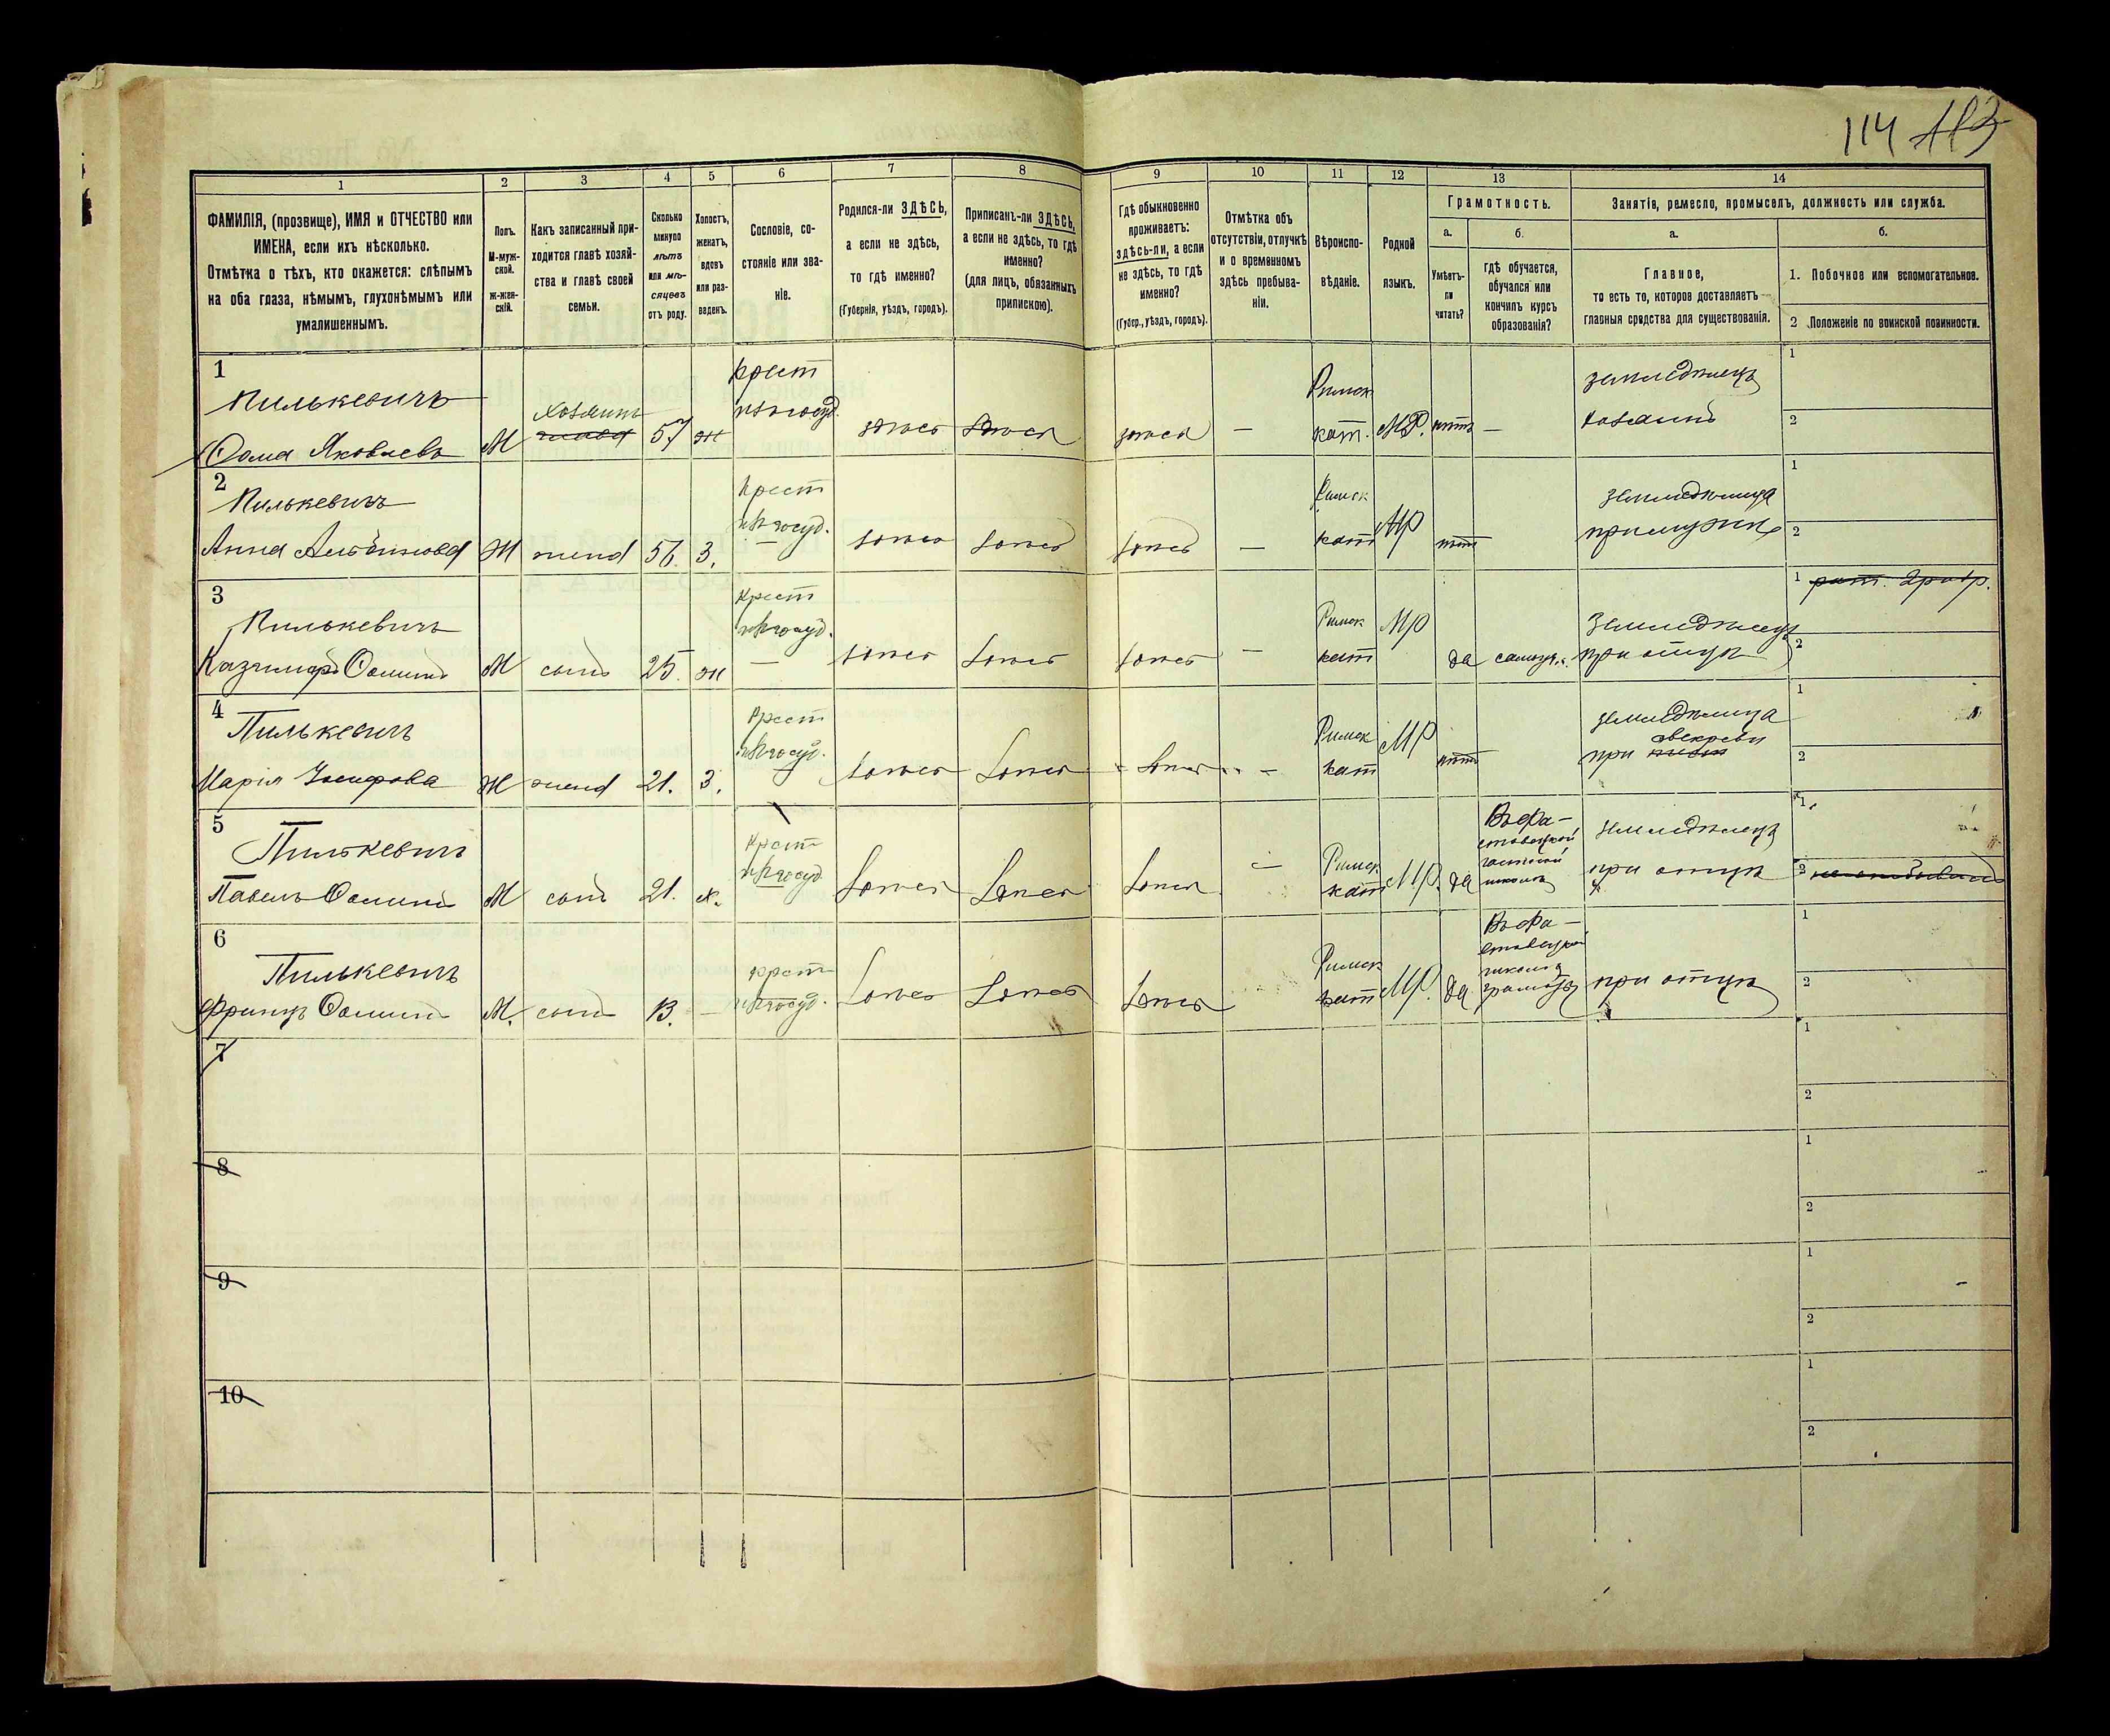 114 113
1 2 3 4 5 6 7 8 9 10 11 12 13 14
ФАМИЛІЯ, (прозвище), ИМЯ и ОТЧЕСТВО или
ИМЕНА, если ихъ нѣсколько.
Отмѣтка о тѣхъ, кто окажется: слѣпымъ
на оба глаза, нѣмымъ, глухонѣмымъ или
умалишеннымъ.
Полъ.
М-муж-
ской.
Ж-жен-
скій.
Какъ записанный при-
ходится главѣ хозяй-
ства и главѣ своей
семьи.
Сколько
минуло
лѣтъ
или мѣ-
сяцевъ
отъ роду.
Холостъ,
женатъ,
вдовъ
или раз-
веденъ.
Сословіе, со-
стояніе или зва-
ніе.
Родился-ли ЗДѢСЬ,
а если не здѣсь,
то гдѣ именно?
(Губернія, уѣздъ, городъ).
Приписанъ-ли ЗДѢСЬ,
а если не здѣсь, то гдѣ
именно?
(для лицъ, обязанныхъ
припискою).
Гдѣ обыкновенно
проживаетъ:
здѣсь-ли, а если
не здѣсь, то гдѣ
именно?
(Губер., уѣздъ, городъ).
Отмѣтка объ
отсутствіи, отлучкѣ
и о временномъ
здѣсь пребыва-
ніи.
Вѣроиспо-
вѣданіе.
Родной
языкъ.
Грамотность.
а.
Умѣетъ-
ли
читать?
б.
гдѣ обучается,
обучался или
кончилъ курсъ
образованія?
Занятія, ремесло, промыселъ, должность или служба.
а.
Главное,
то есть то, которое доставляетъ
главныя средства для существованія.
б.
1. Побочное или вспомогательное.
2 Положеніе по воинской повинности.
1
Пилькевичъ
Ѳома Яковлевъ
М
Хозяинъ
57
ж
крест
изъ госуд.
здѣсь
здѣсь
здѣсь
—
Римск
кат.
МР.
нѣтъ
—
земледѣлецъ
хозяинъ
1
2
2
Пилькевичъ
Анна
Ж
жена
56.
З.
Крест
изъ госуд.
здѣсь
здѣсь
здѣсь
—
Римск
кат
МР
нѣтъ
земледѣлица
при мужѣ
1
2
3
Пилькевичъ
Казимиръ Ѳоминъ
М
сынъ
25.
ж
Крест
изъ госуд.
—
здѣсь
здѣсь
здѣсь
—
Римск
кат
МР
да
самоуч.
Земледѣлецъ
при отцѣ
1
2
4
Пилькевичъ
Марія
Ж
жена
21.
З.
Крест
изъ госуд.
здѣсь
здѣсь
здѣсь
—
Римск
кат
МР
нѣтъ
земледѣлица
свекрови
при
1
2
5
Пилькевичъ
Павелъ Ѳоминъ
М
сынъ
21.
х.
Крест
изъ госуд
здѣсь
здѣсь
здѣсь
—
Римск
кат
МР.
да
Въ Фа-
стовецкой
школѣ
земледѣлецъ
при отцѣ
1
2
6
Пилькевичъ
Францъ Ѳоминъ
М.
сынъ
13.
—
крест
изъ госуд.
здѣсь
здѣсь
здѣсь
Римск
кат
МР.
да
Въ Фа-
стовецкой
школѣ
грамоты
при отцѣ
1
2
7
1
2
8
1
2
9
1
2
10
1
2